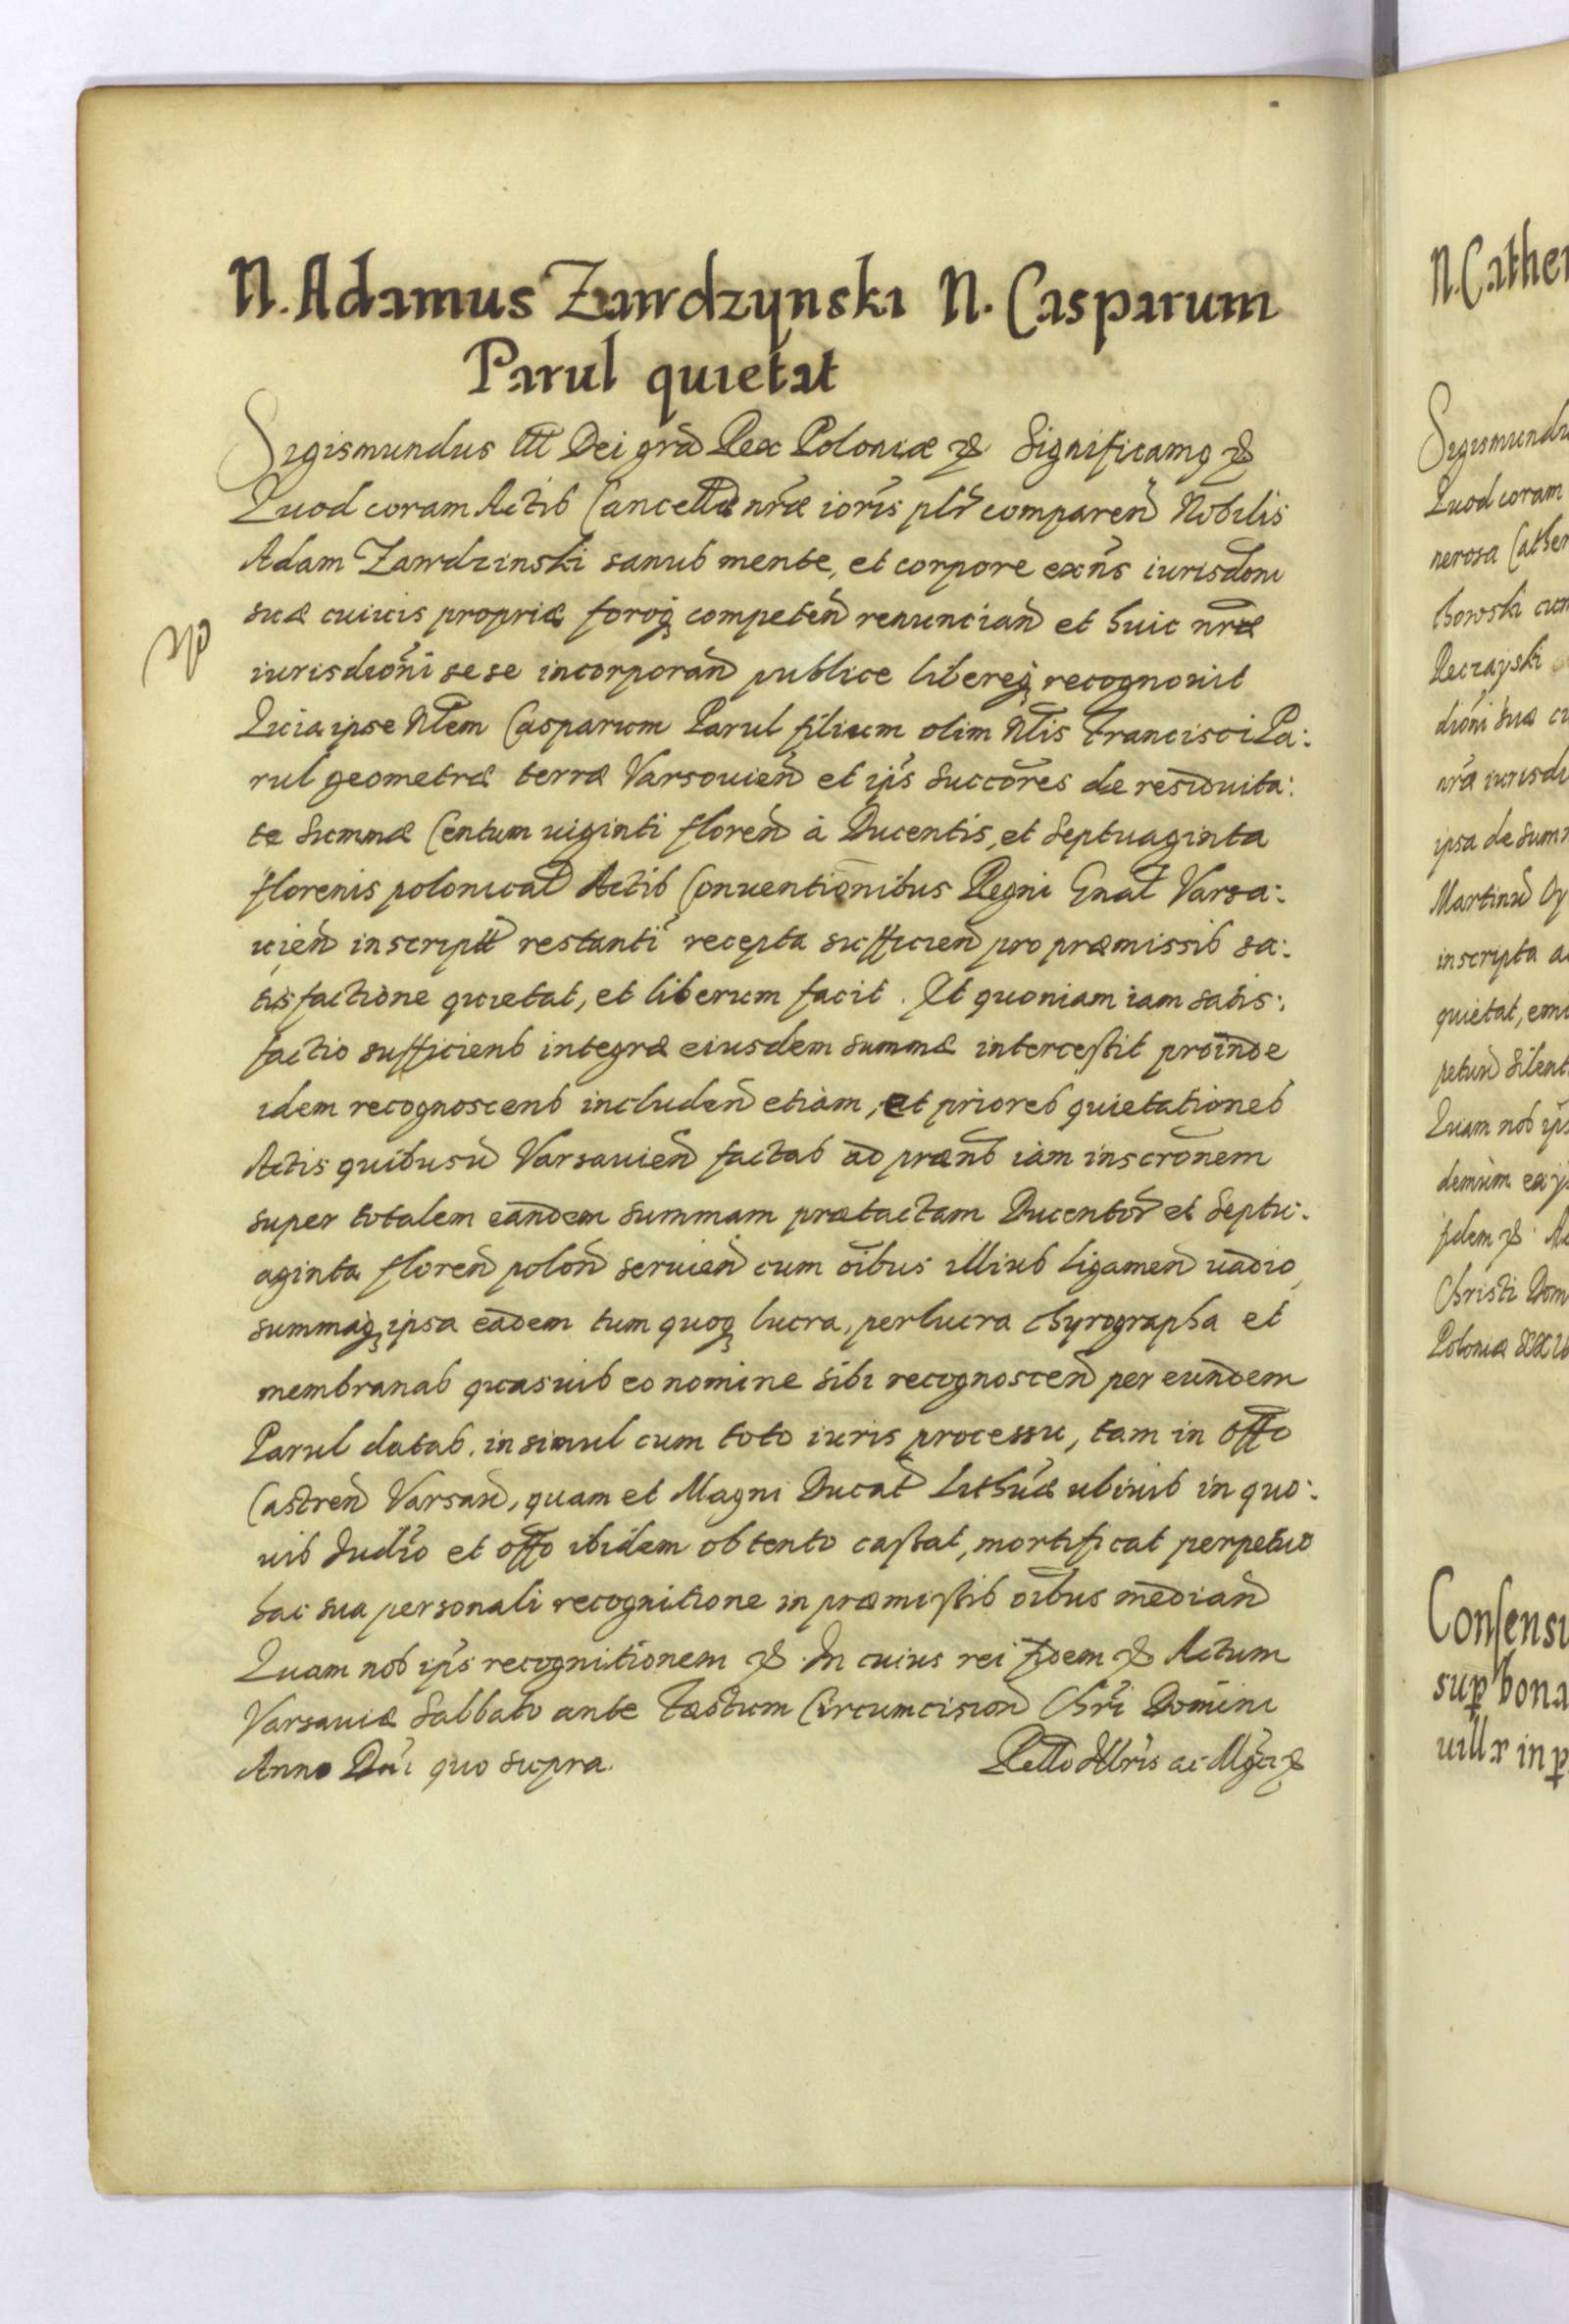 N. Adamus Zawdzynski N. Casparum
Parul quietat
Sigismundus III Dei grā Rex Poloniæ &c Significamq &c
Quod coram Actis Cancellæ nræ ioris plr comparen Nobilis
Adam Zawdzinski sanus mente, et corpore exns iurisdoni
suæ cuiuis propriæ foroq competen renuncian et huic nræ
iurisdioni sese incorporan publice libereq recognouit
Quia ipse Nlem Casparum Parul filium olim Nlis Francisci Pa:
rul geometræ terræ Varsouien et ips succores de residuita:
te Summæ Centum uiginti floren à Ducentis, et Septuaginta
florenis polonical Actis Conuentionibus Regni Gnal Varsa:
uien inscript restanti recepta sufficien pro præmissis sa:
tisfactione quietat, et liberum facit. Et quoniam iam satis:
factio sufficiens integræ eiusdem summæ intercessit proinde
idem recognoscens includen etiam, et priores quietationes
Actis quibusu Varsauien factas ad præns iam inscronem
super totalem eandem summam prætactam Ducentor et Septu:
aginta floren polon seruien cum oibus illius ligamen uadio,
summaq ipsa eadem tum quoq lucra, perlucra chyrographa et
membranas quasuis eo nomine sibi recognoscen per eundem
Parul datas, insimul cum toto iuris processu, tam in offo
Castren Varsauien, quam et Magni Ducat Lithuæ ubiuis in quo:
uis Judio et offo ibidem obtento cassat, mortificat perpetuo
hac sua personali recognitione in præmissis oibus median
Quam nos ips recognitionem &c. In cuius rei fidem &c Actum
Varsauiæ Sabbato ante Fæstum Circumcision Chri Domini
Anno Dni quo supra. Rello Illris ac Mgci &c
N. Cather
Sigismundu
Quod coram
nerosa Cather
bowski cum
Reczayski
dioni suæ cu
nræ iurisdi
ipsa de summ
Martinu Oy
inscripta a
quietat, em
petuu silent
Quam nos ips
demum ea
fidem &c Ac
Christi Dom
Poloniæ
Consensu
sup bona
uillæ in p